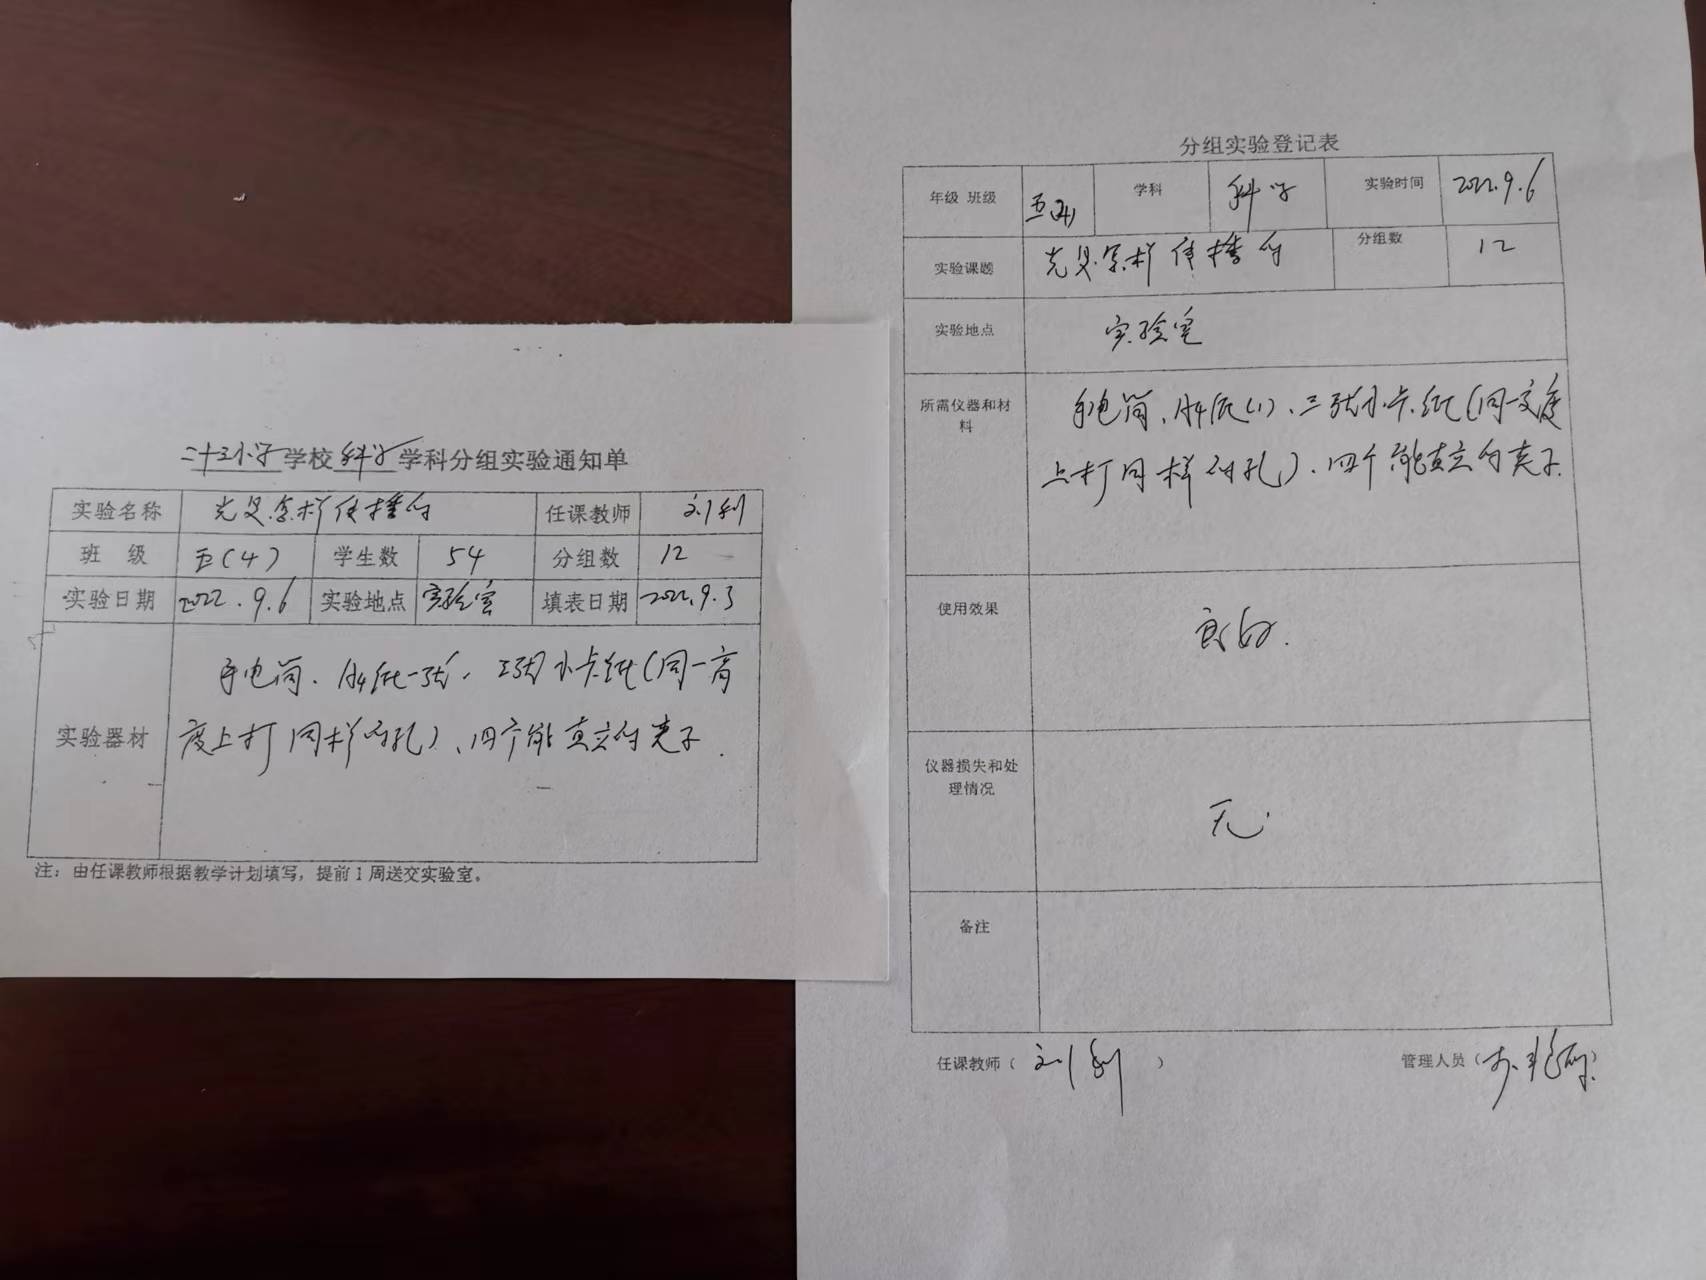 二十三小学学校科学学科分组实验通知单
实验名称 光是怎样传播的 任课教师 刘利
班 级 五(4) 学生数 54 分组数 12
实验日期 2022.9.6 实验地点 实验室 填表日期 2022.9.3
实验器材
手电筒、A4纸一张、三张小卡纸(同一高
度上打同样的孔)、四个能直立的夹子.
注：由任课教师根据教学计划填写，提前1周送交实验室。
分组实验登记表
年级 班级 五(4) 学科 科学 实验时间 2022.9.6
实验课题 光是怎样传播的 分组数 12
实验地点 实验室
所需仪器和材
料
手电筒、A4纸(1)、三张小卡纸(同一高度
上打同样的孔)、四个能直立的夹子.
使用效果 良好.
仪器损失和处
理情况
无.
备注
任课教师（刘利） 管理人员（